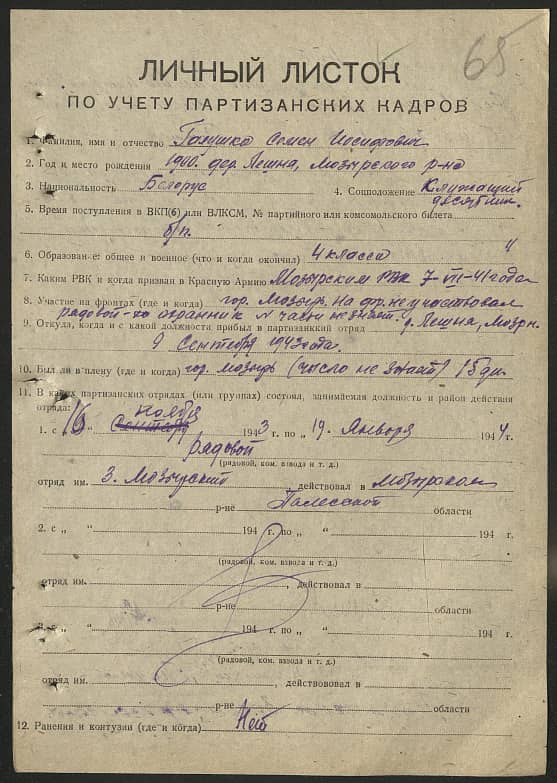 65
ЛИЧНЫЙ ЛИСТОК
ПО УЧЕТУ ПАРТИЗАНСКИХ КАДРОВ
1. Фамилия, имя и отчество Семен Иосифович
2. Год и место рождения дер. Лешня, Мозырского р-на
3. Национальность Белорус 4. Соцположение Служащий
5. Время поступления в ВКП(б) или ВЛКСМ, № партийного или комсомольского билета
б/п.
6. Образование: общее и военное (что и когда окончил) 4 класса
7. Каким РВК и когда призван в Красную Армию Мозырским РВК 7-VII-41 года
8. Участие на фронтах (где и когда) гор. Мозырь на фр. не участвовал
рядовой охранник
9. Откуда, когда и с какой должности прибыл в партизанский отряд д. Лешня, Мозрн.
9 Сентября 1943 года.
10. Был ли в плену (где и когда) гор. Мозырь (число не знает) 15 дн.
11. В каких партизанских отрядах (или группах) состоял, занимаемая должность и район действия
отряда: ноября
1. с „16“ Сентября 1943 г. по „19. Января 1944 г.
рядовой
(рядовой, ком. взвода и т. д.)
отряд им. 3. Мозырский действовал в Мозырском
р-не Полесской области
2. с „ “ 194 г. по „ “ 194 г.
(рядовой, ком. взвода и т. д.)
отряд им. , действовал в
р-не области
3. с „ “ 194 г. по „ “ 194 г.
(рядовой, ком. взвода и т. д.)
отряд им. , действовал в
р-не области
12. Ранения и контузии (где и когда) Нет